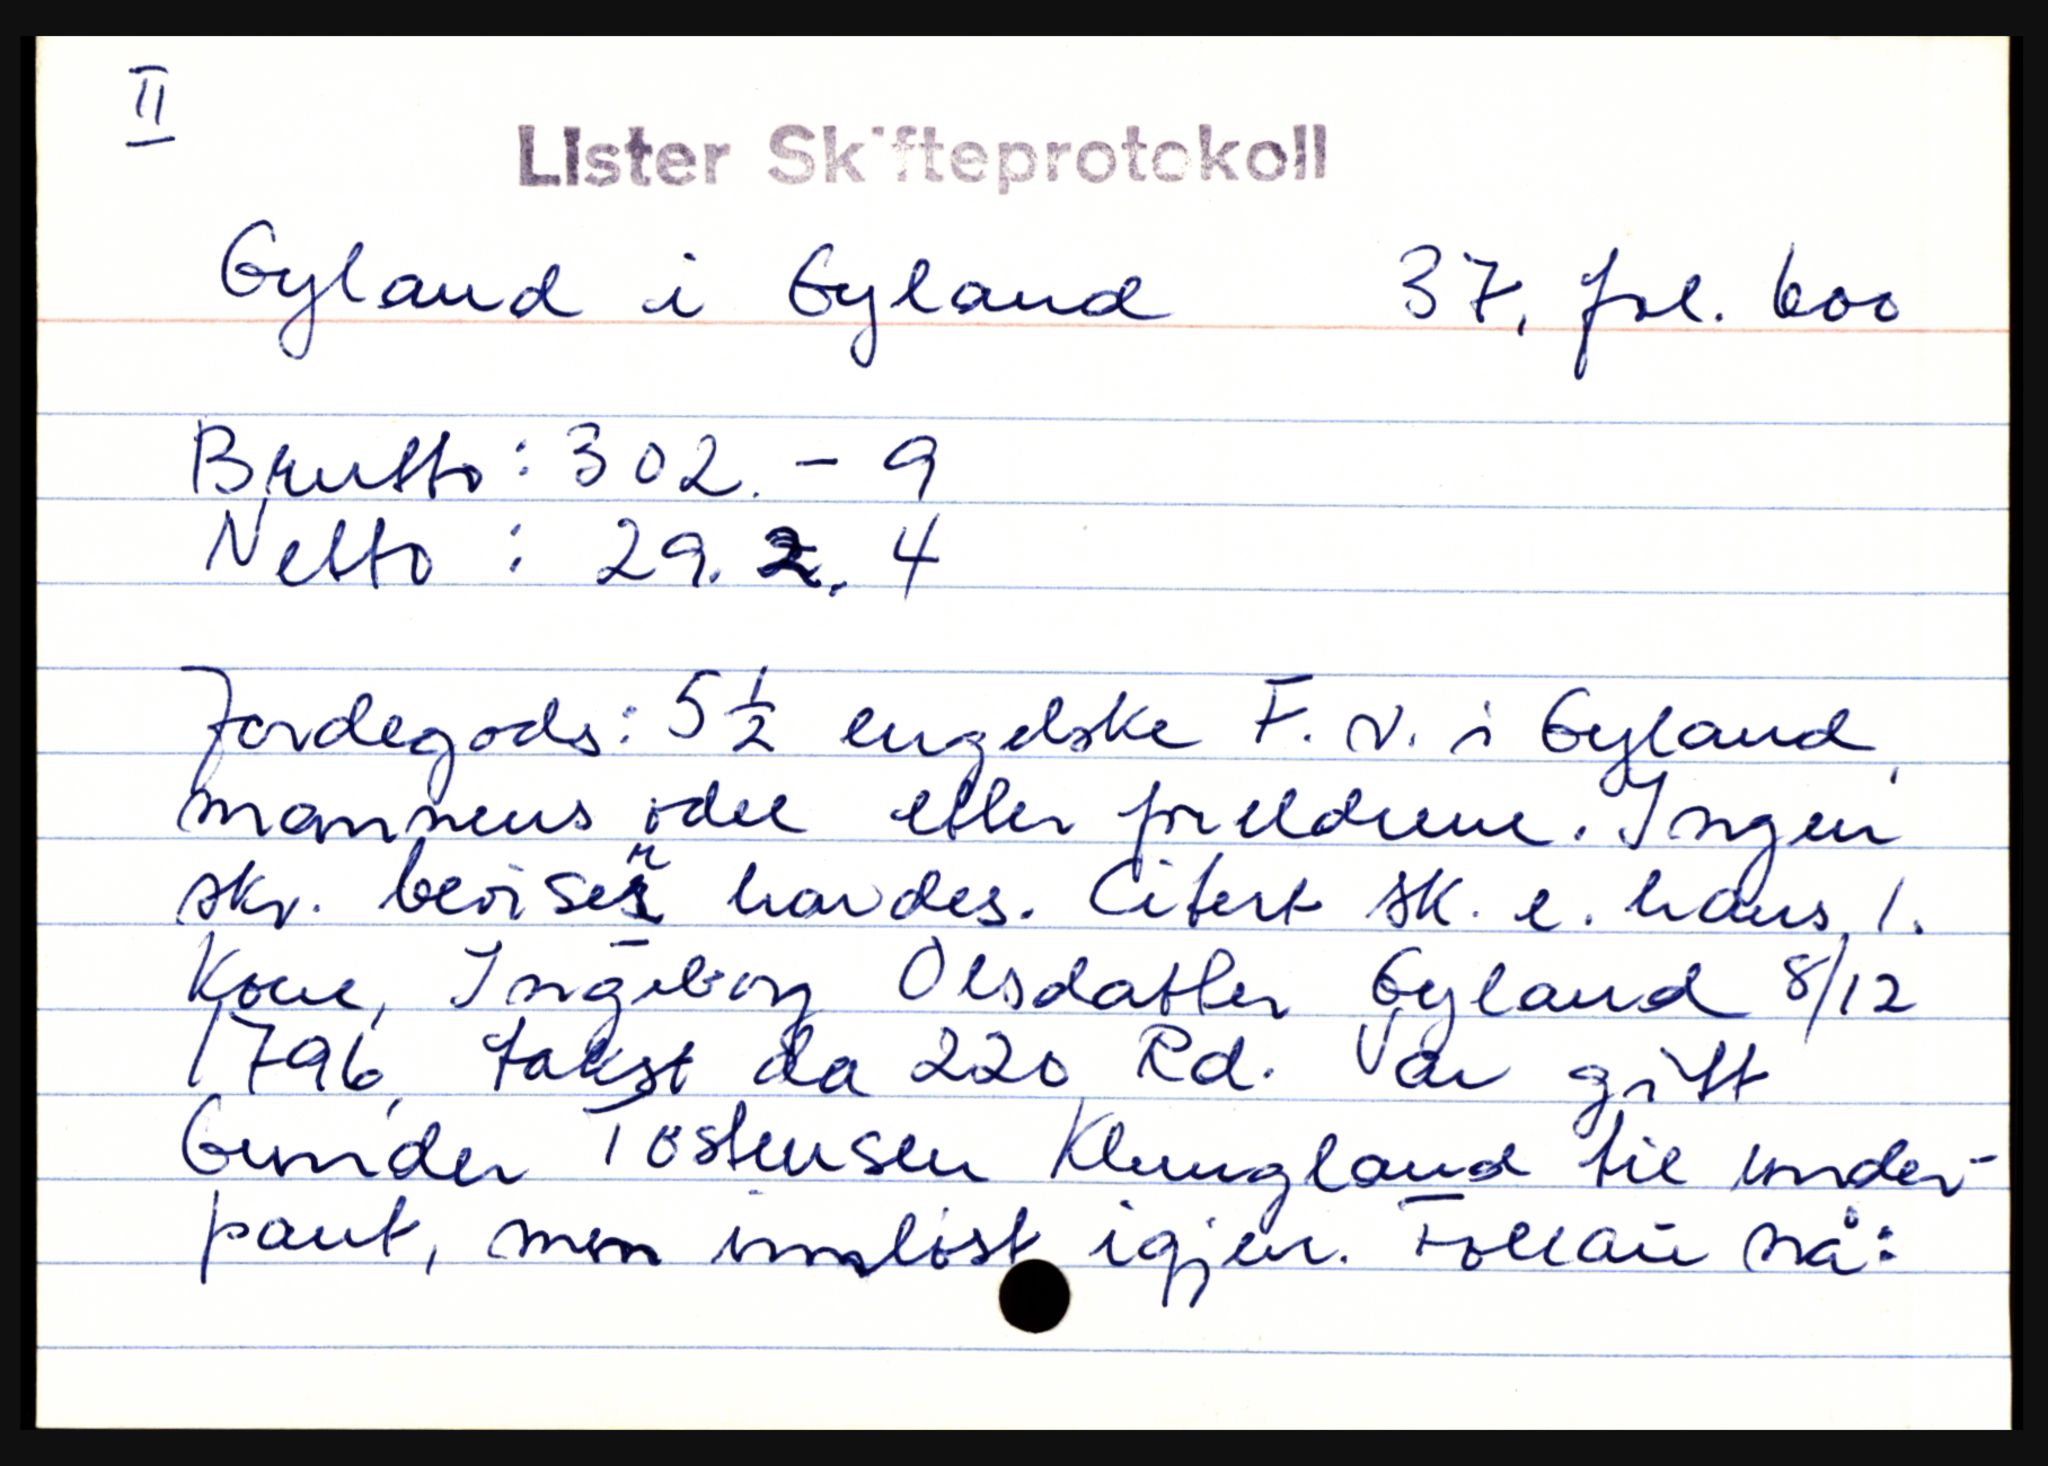 II
Lister Skifteprotokoll
Gyland i Gyland 37, fol. 600
Brutto: 302. - 9
Netto: 29. 2. 4
Jordegods: 5 1/2 engelske F. v. i Gyland,
mannens odel etter foreldrene. Ingen
skr. beviser havdes. Citert sk. e. hans 1.
Kone, Ingeborg Olsdatter Gyland 8/12
1796, takst da 220 Rd. Var gitt
Gunder Tostensen Klungland til under-
pant, men innløst igjen. Follaug nå: